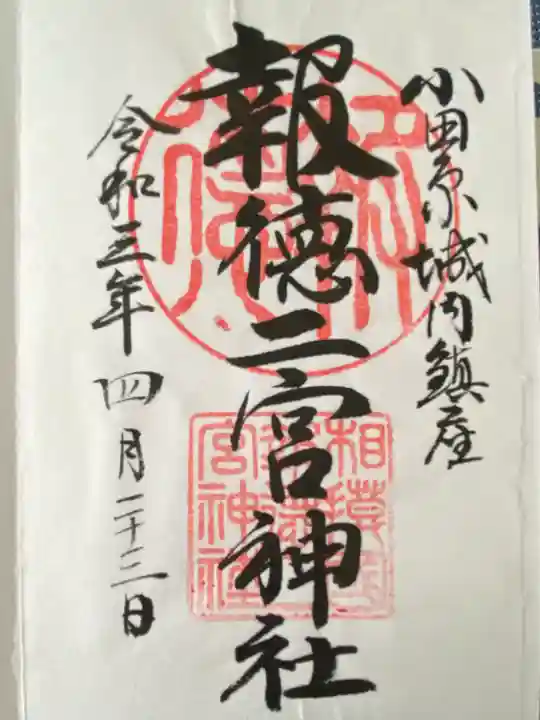 小田原城内鎮座
報徳二宮神社
令和三年四月二十三日
相模國
宮神社